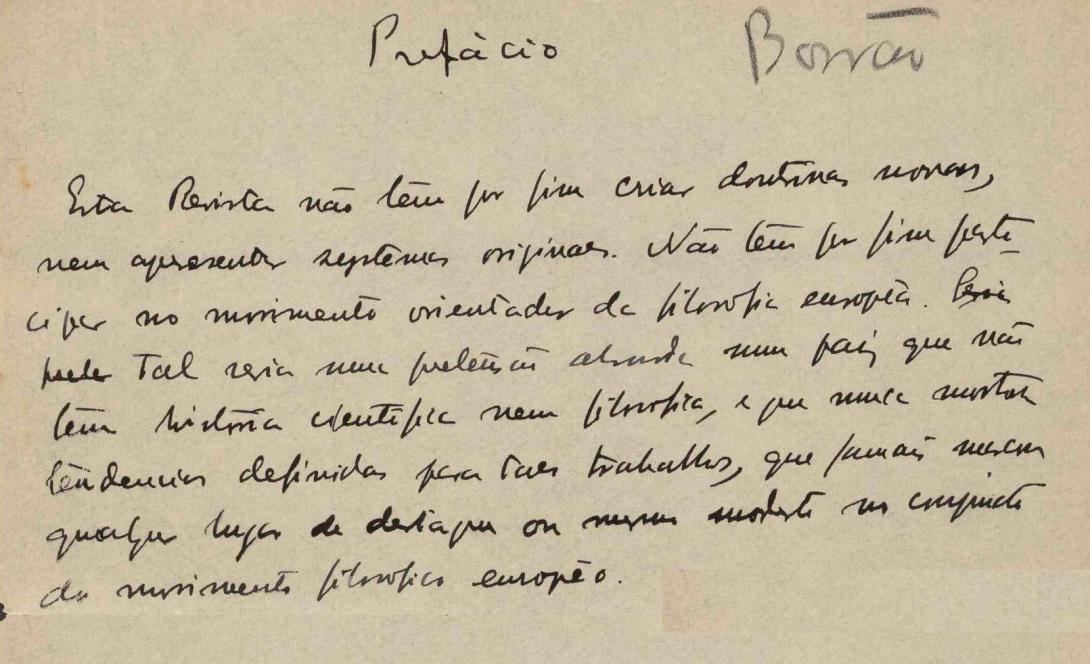 Prefácio Borrão
Esta Revista não têm por fim criar doutrinas novas,
nem apresentar systemas originaes. Não têm por fim parti-
cipar no movimento orientador da filosofia européa. Seria
Tal seria uma pretensão absurda num paiz que não
têm história científica nem filosofica, e que nunca mostrou
tendencias definidas para taes trabalhos, que jamais
qualquer lugar de destaque ou mesmo modesto no conjuncto
do movimento filosofico européo.